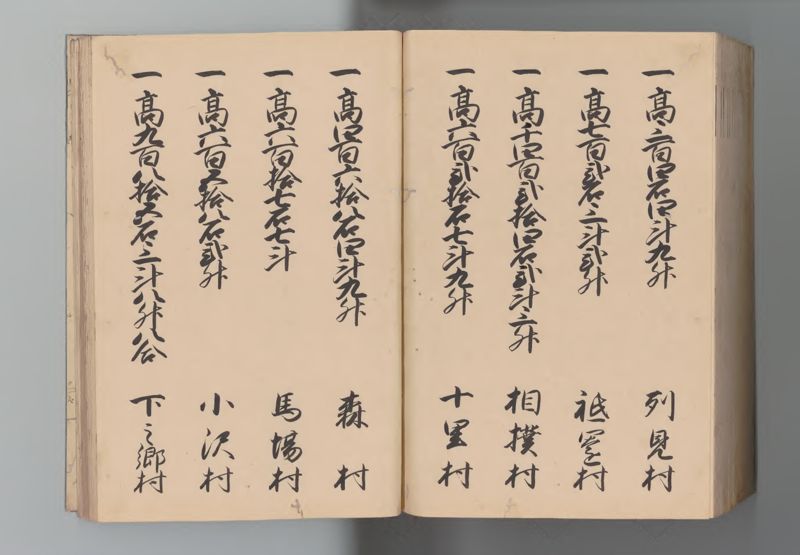 一高三百四石四斗九升 列見村
一高七百弐石三斗弐升 祗園村
一高千四百弐拾四石弐斗三升 相撲村
一高六百弐拾石七斗九升 十里村
一高四百六拾八石四斗九升 森村
一高六百拾七石七斗 馬場村
一高六百五拾八石弐升 小沢村
一高九百八拾五石三斗八升八合 下之郷村